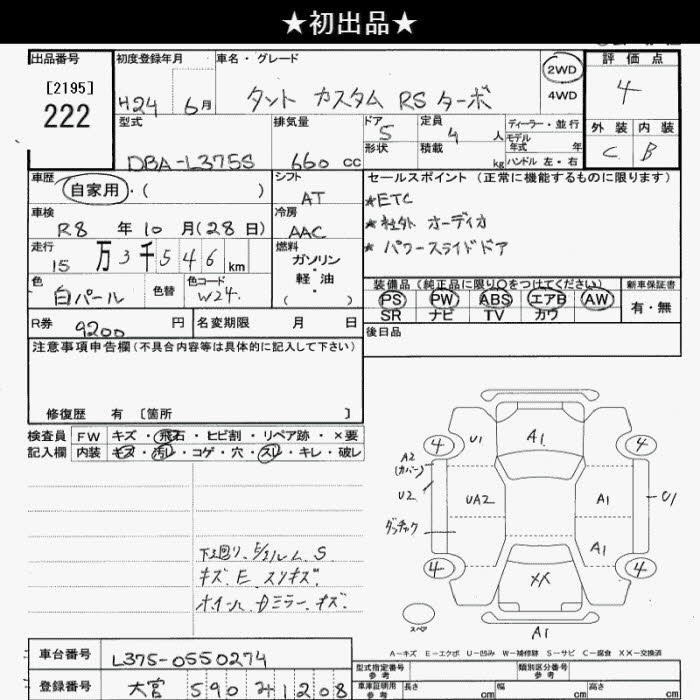 ★初出品★
出品番号
[2195]
222
初度登録年月
H24 6月
車名・グレード
タント カスタム RS ターボ
2WD
4WD
評価点
4
外装 内装
C B
型式
DBA-L375S
排気量
660 cc
ドア 5
形状
定員 4 人
積載 kg
ディーラー・並行
モデル年式 年
ハンドル 左・右
車歴
自家用・( )
シフト
AT
セールスポイント (正常に機能するものに限ります)
★ETC
★社外 オーディオ
★パワースライドドア
車検
R8 年 10 月(28 日)
冷房
AAC
走行
15万3千546 km
燃料
ガソリン・軽油・( )
色
白パール
色替
色コード
W24
装備品 (純正品に限り○をつけてください)
PS PW ABS エアB AW
SR ナビ TV カワ
新車保証書
有・無
R券 9200 円
名変期限 月 日
後日品
注意事項申告欄 (不具合内容等は具体的に記入して下さい)
修復歴 有 [箇所 ]
検査員記入欄
FW キズ・飛石・ヒビ割・リペア跡・×要
内装 キズ・汚レ・コゲ・穴・スレ・キレ・破レ
下廻り、S
キズ、E、スリキズ
ホイール、Dミラー、キズ
4 U1 A1 4
A2
(カバー)
U2
UA2 A1 U1
ダッチャク
A1
4 XX 4
スペア
A1
A-キズ E-エクボ U-凹み W-補修跡 S-サビ C-腐食 XX-交換済
車台番号 L375-0550274
登録番号 大宮 590 た 1208
型式指定番号 参考
類別区分番号 参考
車庫証明用 参考 長さ cm 幅 cm 高さ cm